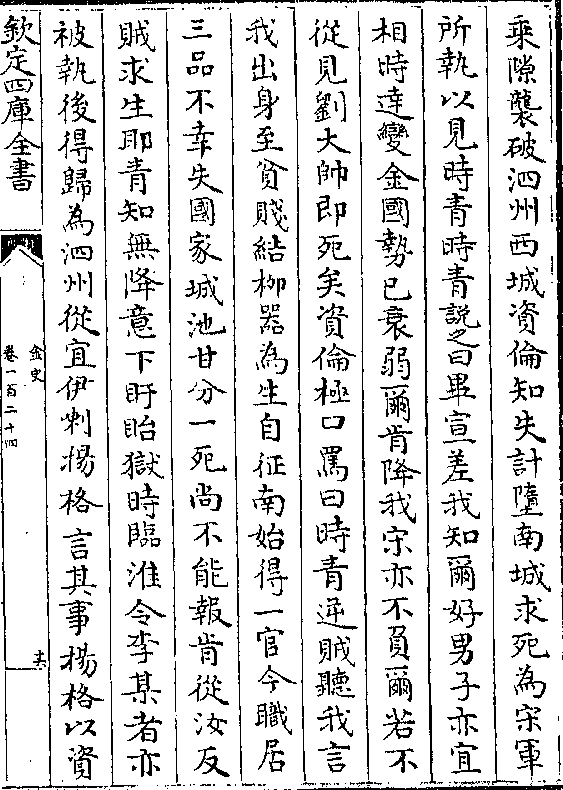 乘隙襲破泗州西城資倫知失計墮南城求死為宋軍
所執以見時青時青説之曰畢宣差我知爾好男子亦宜
相時達變金國勢已衰弱爾肯降我宋亦不負爾若不
從見劉大帥即死矣資倫極口罵曰時青逆賊聽我言
我出身至貧賤結栁器為生自征南始得一官今職居
三品不幸失國家城池甘分一死尚不能報肯從汝反
賊求生耶青知無降意下盱眙獄時臨淮令李某者亦
被執後得歸為泗州從宜伊喇揚格言其事揚格以資
欽定四庫全書
金史
卷一百二十四
十六